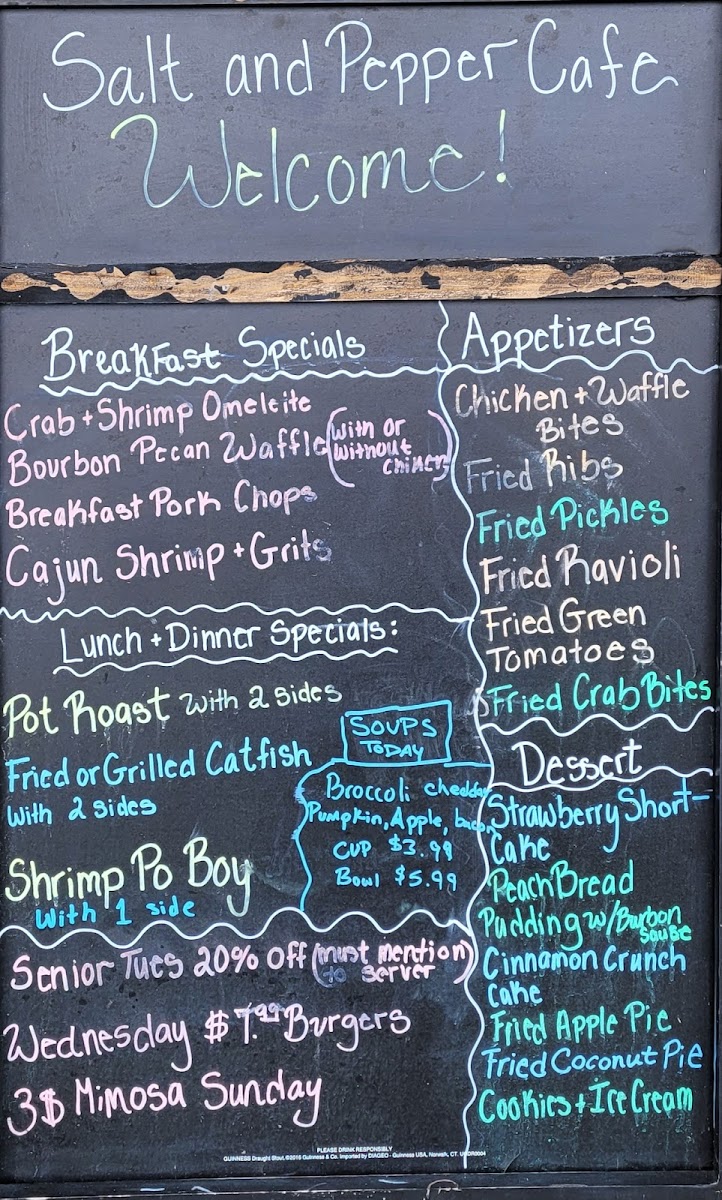 Salt and Pepper Cafe
Welcome!
Breakfast Specials
Crab + Shrimp Omelette
Bourbon Pecan Waffle (with or
without
chicken)
Breakfast Pork Chops
Cajun Shrimp + Grits
Lunch + Dinner Specials:
Pot Roast with 2 sides
Fried or Grilled Catfish
with 2 sides
Shrimp Po Boy
with 1 side
Soups
Today
Broccoli cheddar
Pumpkin, Apple, bacon
Cup $3.99
Bowl $5.99
Senior Tues 20% off (must mention
to server)
Wednesday $7.99 Burgers
3$ Mimosa Sunday
Appetizers
Chicken + Waffle
Bites
Fried Ribs
Fried Pickles
Fried Ravioli
Fried Green
Tomatoes
Fried Crab Bites
Dessert
Strawberry Short-
Cake
Peach Bread
Pudding w/Burbon
sause
Cinnamon Crunch
Cake
Fried Apple Pie
Fried Coconut Pie
Cookies + Ice Cream
PLEASE DRINK RESPONSIBLY
GUINNESS Draught Stout. ©2015 Guinness & Co. Imported by DIAGEO - Guinness USA, Norwalk, CT.